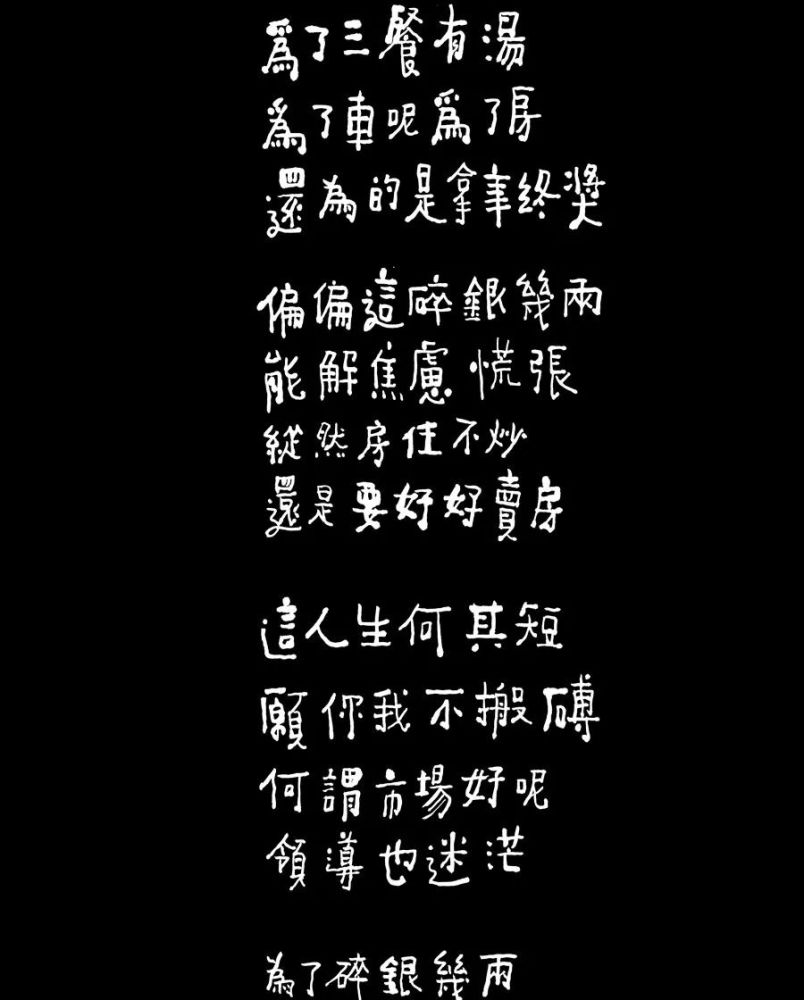 爲了三餐有湯
爲了車呢爲了房
還為的是拿年終獎
偏偏這碎銀幾兩
能解焦慮慌張
縱然房住不炒
還是要好好賣房
這人生何其短
願你我不搬磚
何謂市場好呢
領導也迷茫
為了碎銀幾兩